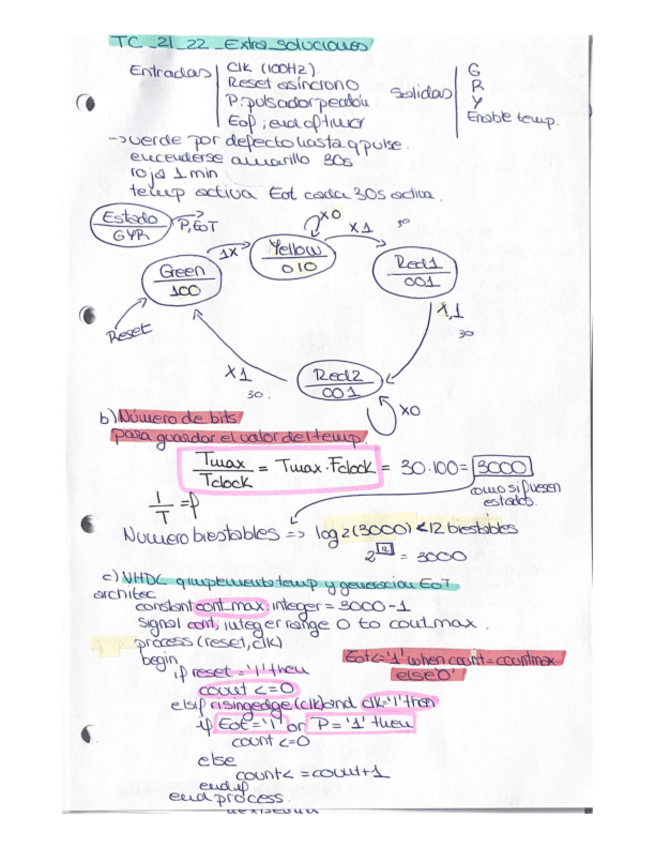 TC_21_22_Extra_soluciones
Entradas | Clk (100Hz).
Reset asíncrono
P: pulsador peatón
EoT; end of timer
Salidas | G
R
Y
Enable temp.
-> verde por defecto hasta q pulse.
encenderse amarillo 30s
rojo 1 min
temp activa EoT cada 30s activa.
Estado
GYR
P, EoT
Green
100
1X
Yellow
010
X0
X1
30
Red1
001
X,1
30
Red2
001
X0
X1
30.
Reset
b) Número de bits
para guardar el valor del temp.
Tmax / Tclock = Tmax · Fclock = 30·100 = 3000
como si fuesen
estados.
1/T = f
Numero biestables => log2(3000) < 12 biestables
2^12 = 3000
c) VHDL q implemento temp y generacion EoT
architec
constant cont_max: integer = 3000-1
signal cont; integer range 0 to cout_max.
process (reset, clk)
begin
Eot <= '1' when count = countmax
else '0'
if reset = '1' then
count <= 0
elsif risingedge (clk) and clk='1' then
if Eot = '1' or P = '1' then
count <= 0
else
count <= count+1
end if
end process.